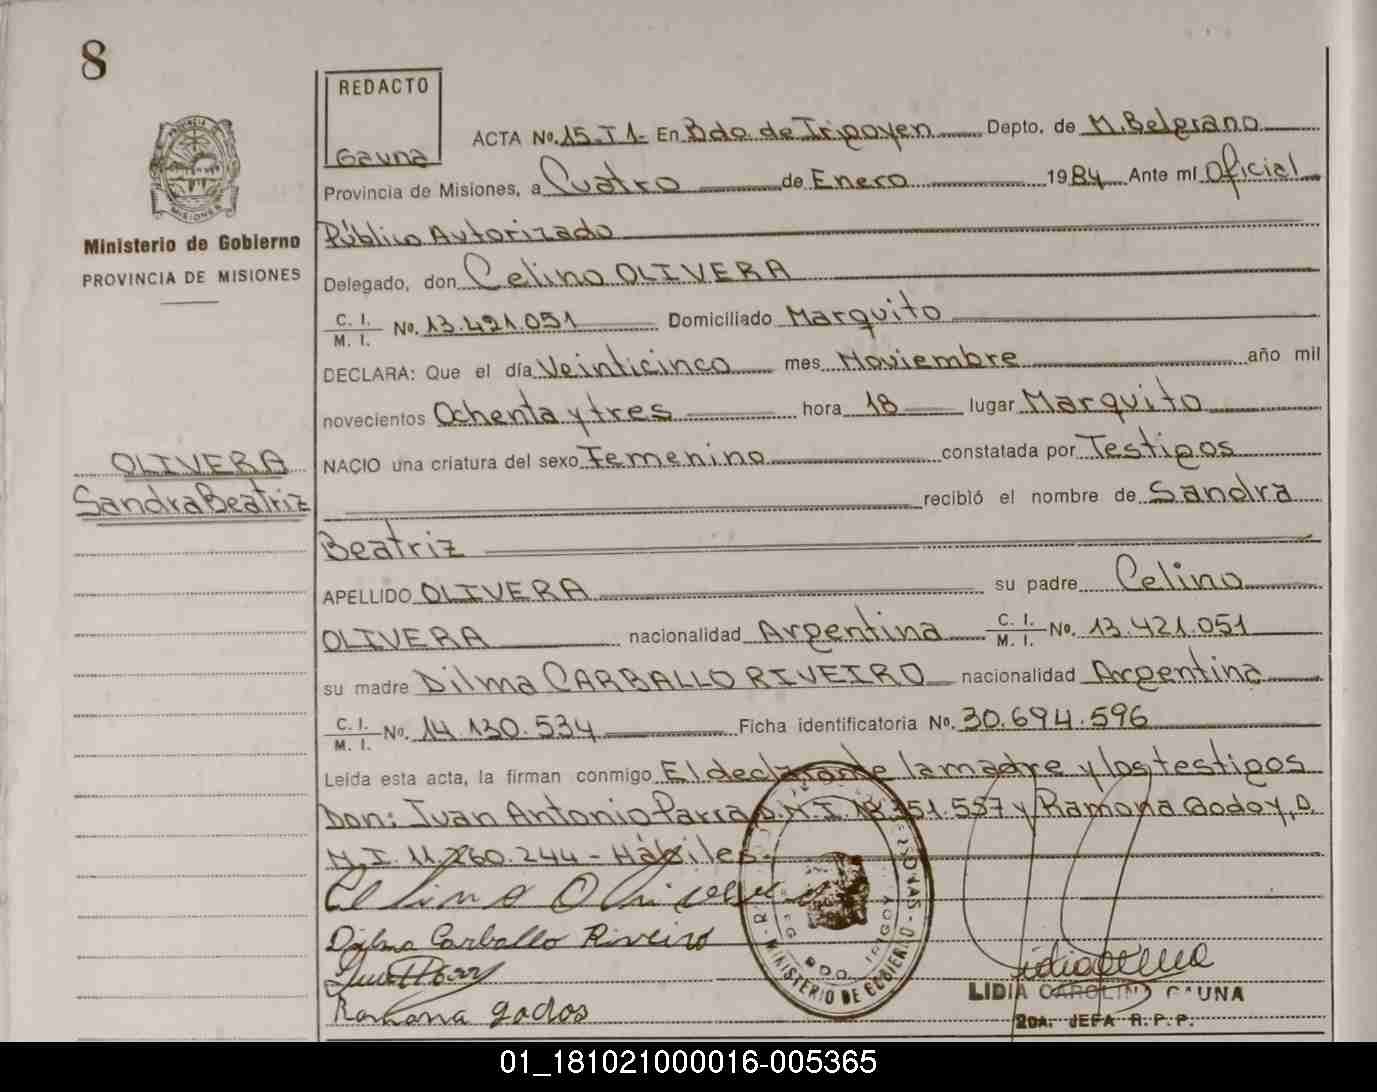 8
REDACTO
Gauna
PROVINCIA DE
MISIONES
Ministerio de Gobierno
PROVINCIA DE MISIONES
ACTA No. 15-T1- En Bdo. de Irigoyen Depto. de M. Belgrano
Provincia de Misiones, a Cuatro de Enero 1984 Ante mí Oficial
Público Autorizado
Delegado, don Celino OLIVERA
C. I.
M. I. No. 13.421.051 Domiciliado Marquito
DECLARA: Que el día Veinticinco mes Noviembre año mil
novecientos Ochenta y tres hora 18 lugar Marquito
OLIVERA
Sandra Beatriz
NACIO una criatura del sexo Femenino constatada por Testigos
recibió el nombre de Sandra
Beatriz
APELLIDO OLIVERA su padre Celino
OLIVERA nacionalidad Argentina C. I. M. I. No. 13.421.051
su madre Dilma CARBALLO RIVEIRO nacionalidad Argentina
C. I.
M. I. No. 14.130.534 Ficha identificatoria No. 30.694.596
Leída esta acta, la firman conmigo El declarante la madre y los testigos
Don: Juan Antonio Parra D.M.I. y Ramona Godoy, D.
M.I. 11.260.244 - Hábiles.
Celino Olivera
Dilma Carballo Riveiro
Ramona godos
MINISTERIO DE GOBIERNO
BDO. IRIGOYEN
LIDIA CAROLINA GAUNA
2DA. JEFA R.P.P.
01_181021000016-005365